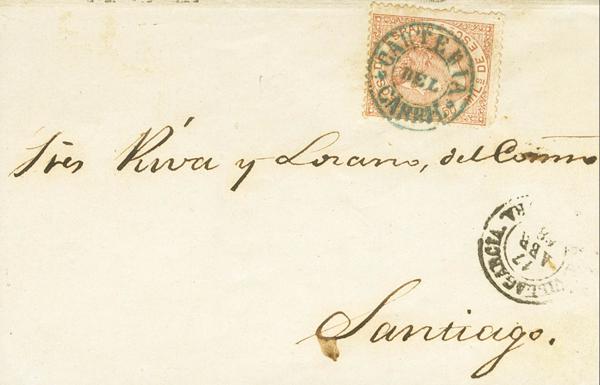 CARTERIA
DEL
CARRIL
Sres Riva y Lozano, del Comº
VILLAGARCIA
17
ABR
68
Santiago.